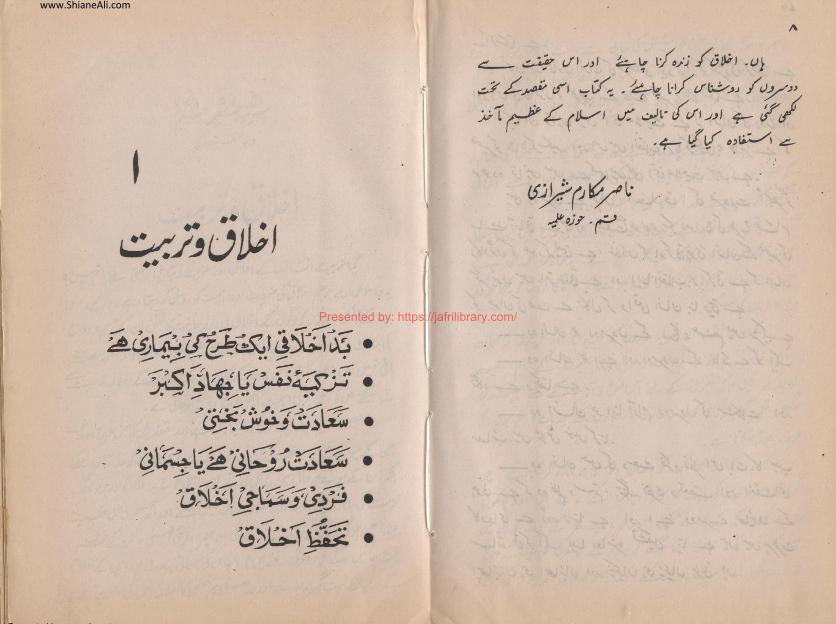 www.ShianeAli.com
۸
ہاں۔ اخلاق کو زندہ کرنا چاہئے اور اس حقیقت سے
دوسروں کو روشناس کرانا چاہئے۔ یہ کتاب اسی مقصد کے تحت
لکھی گئی ہے اور اس کی تالیف میں اسلام کے عظیم مآخذ
سے استفادہ کیا گیا ہے۔
ناصر مکارم شیرازی
قم۔ حوزہ علمیہ
Presented by: https://jafrilibrary.com/
۱
اخلاق و تربیت
• بَد اَخلاقی ایک طَرح کی بِیماری ھَے
• تَزکیۂ نَفس یَا جِھَادِ اَکبَر
• سَعَادَت وَ خُوش بَختی
• سَعَادَت رُوحَانی ھَے یَا جِسمَانی
• فَردِی وَ سَمَاجی اَخلَاق
• تَحَفُّظِ اَخلَاق